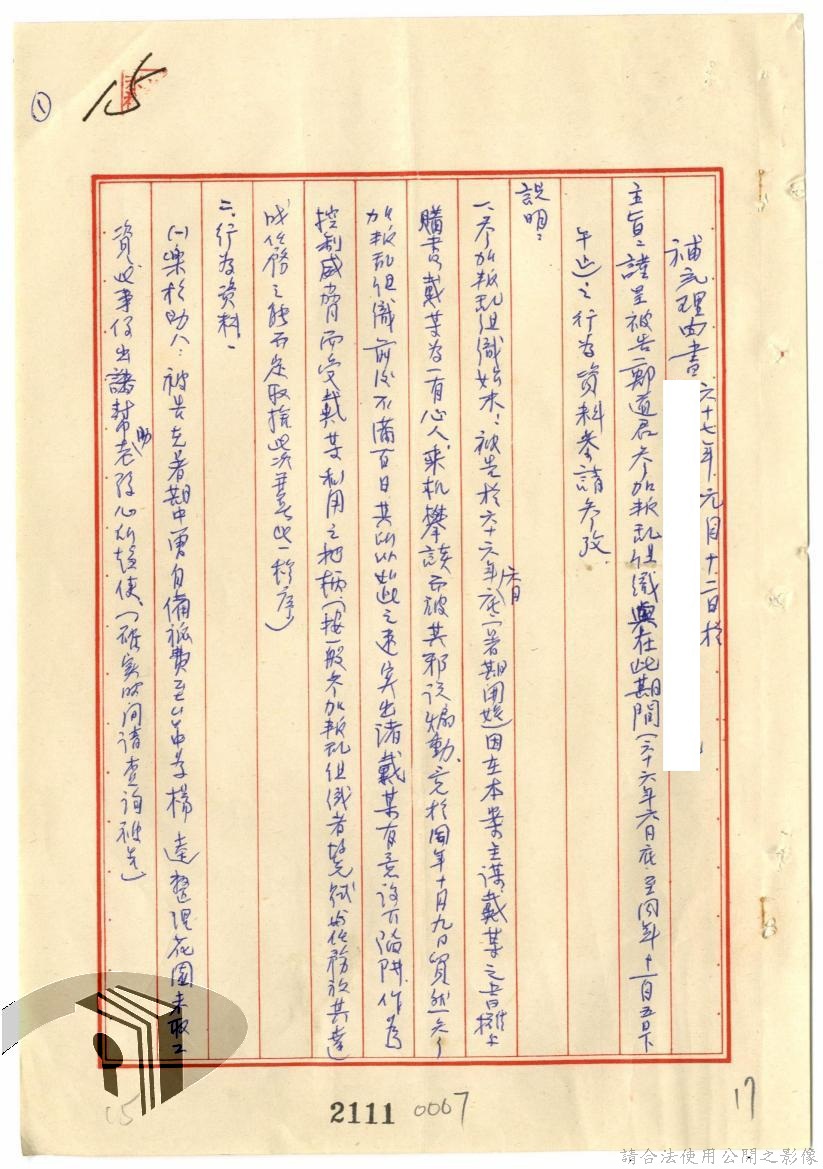 ①
15
補充理由書 六十七年元月十二日於
主旨：謹呈被告鄭道君參加叛乱組織與在此期間（六十六年六月底至同年十一月五日下
午止）之行為資料恭請參攷
說明：
一、參加叛乱組織始末：被告於六十六年六月底（暑期開始）因在本案主謀戴某之書攤上
購書，戴某為一有心人，乘机攀談而被其邪說煽動，竟於同年十月九日貿然參
加叛乱組織前後不滿百日其所以如此之速實出諸戴某有意設下陷阱，作為
控制威脅而受戴某利用之把柄，（按一般參加叛乱組織者故先試与任務放其達
成任務之能否定取捨此次並無此一程序）
二、行為資料：
㈠樂於助人：被告充暑期中曾自備旅費至台中享楊逵整理花園未取工
資此事係出諸幫助老孩心所趨使、（確實時间請查询被告）
15
2111 0007
17
請合法使用公開之影像